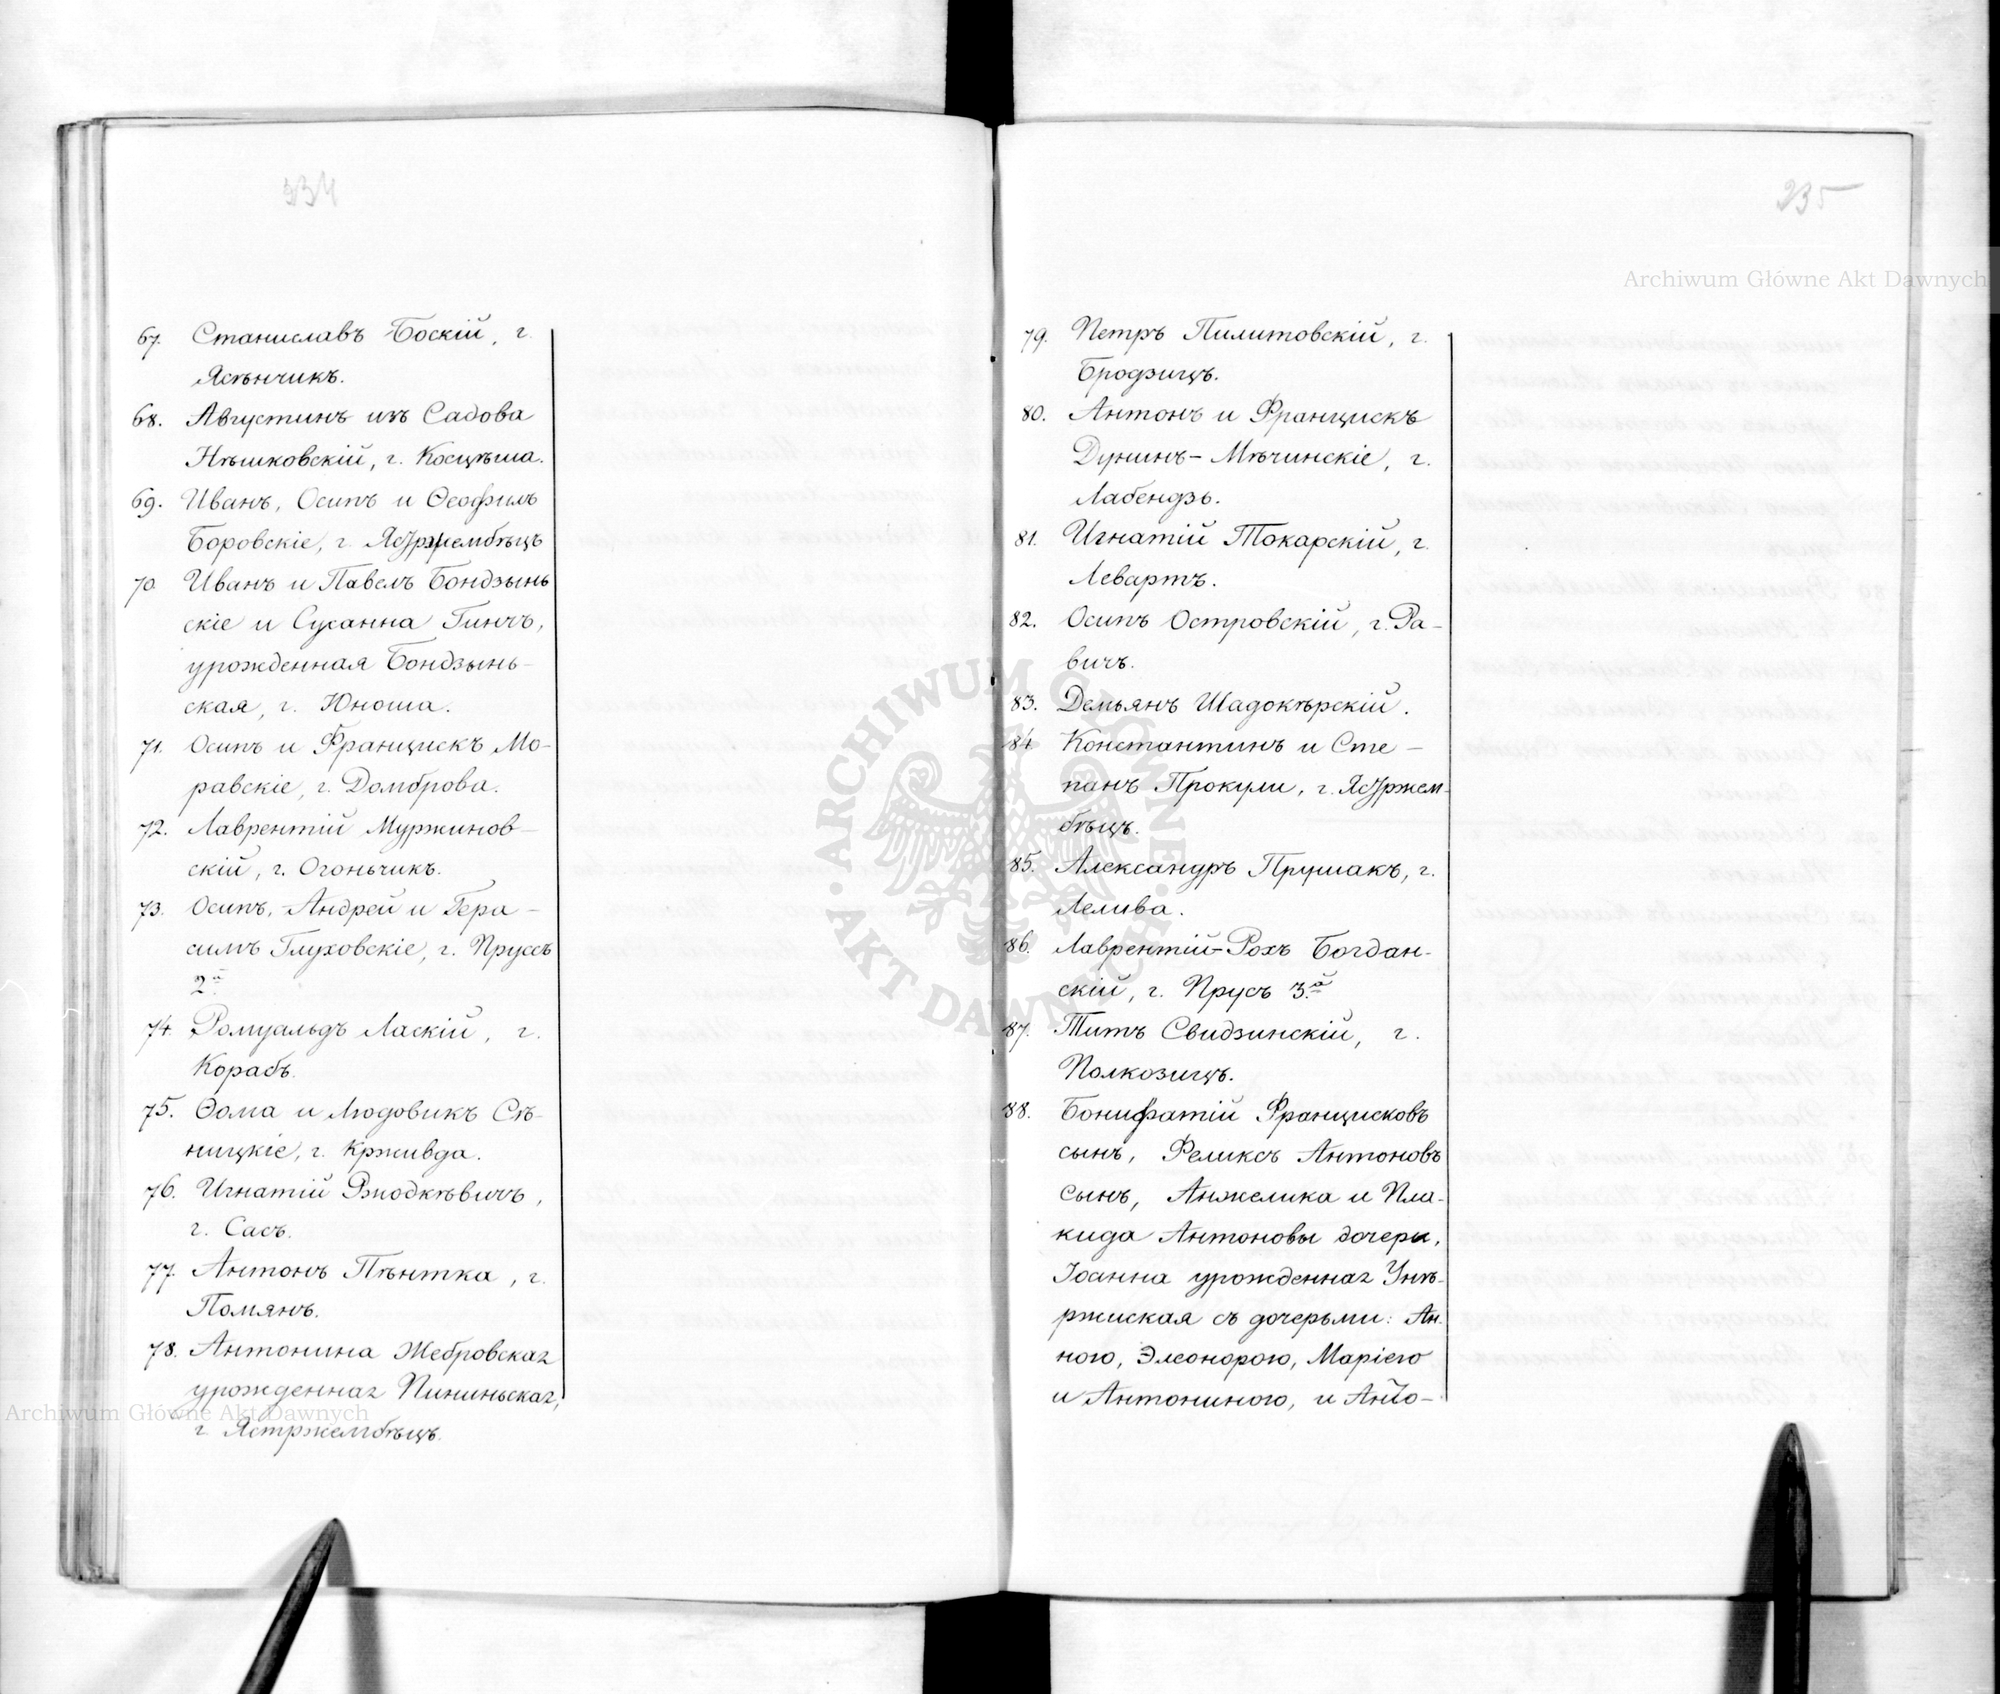 234
67. Станиславъ Боскій, г.
Ясѣнчикъ.
68. Августинъ изъ Садова
Нѣшковскій, г. Косцѣша.
69. Иванъ, Осипъ и Ѳеофилъ
Боровскіе, г. Ястржембѣцъ
70. Иванъ и Павелъ Бондзынь
скіе и Сусанна Гинчъ,
урожденная Бондзынь-
ская, г. Юноша.
71. Осипъ и Францискъ Мо-
равскіе, г. Домброва.
72. Лаврентій Муржинов-
скій, г. Огоньчикъ.
73. Осипъ, Андрей и Гера-
симъ Глуховскіе, г. Пруссъ
2й
74. Ромуальдъ Ласкій, г.
Корабъ.
75. Ѳома и Людовикъ Сѣ-
ницкіе, г. Кржывда.
76. Игнатій Рыодкѣвичъ,
г. Сасъ.
77. Антонъ Пѣнтка, г.
Помянъ.
78. Антонина Жебровская
урожденная Пининьская,
г. Ястржембѣцъ.
235
79. Петръ Пилитовскій, г.
Бродзицъ.
80. Антонъ и Францискъ
Дунинъ-Мѣчинскіе, г.
Лабендзь.
81. Игнатій Токарскій, г.
Левартъ.
82. Осипъ Островскій, г. Ра-
вичъ.
83. Демьянъ Шадокѣрскій.
84 Константинъ и Сте-
панъ Прокули, г. Ястржем-
бѣцъ.
85. Александръ Прушакъ, г.
Лелива.
86. Лаврентій-Рохъ Богдан-
скій, г. Прусъ 3.й
87. Титъ Свидзинскій, г.
Полкозицъ.
88. Бонифатій Францисковъ
сынъ, Феликсъ Антоновъ
сынъ, Анжелика и Пла-
кида Антоновы дочери,
Іоанна урожденная Унѣ-
ржиская съ дочерьми: Ан-
ною, Элеонорою, Маріею
и Антониною, и Анто-
Archiwum Główne Akt Dawnych
ARCHIWUM GŁÓWNE AKT DAWNYCH
Archiwum Główne Akt Dawnych